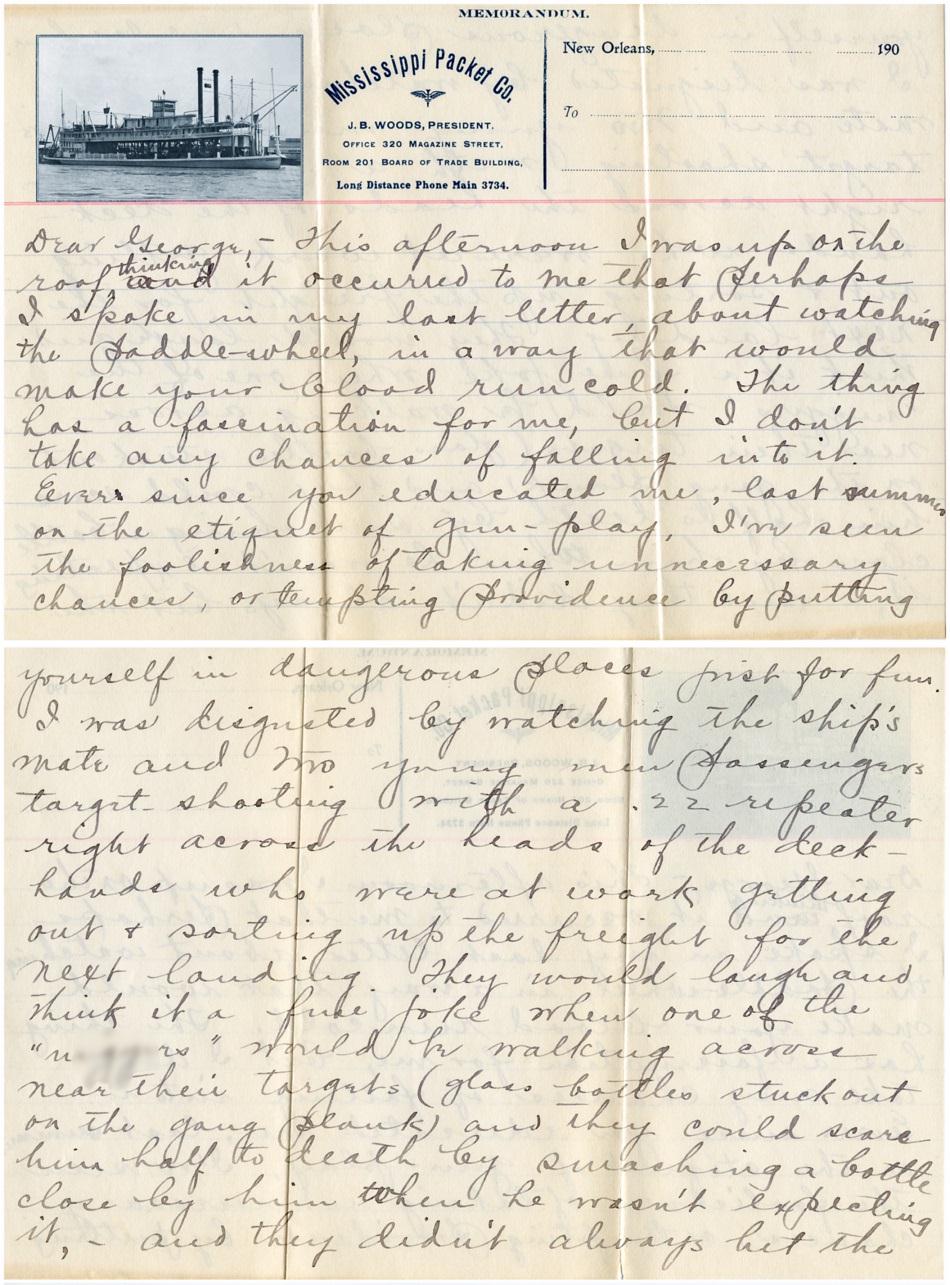 MEMORANDUM.
Mississippi Packet Co.
J. B. WOODS, PRESIDENT.
OFFICE 320 MAGAZINE STREET,
ROOM 201 BOARD OF TRADE BUILDING,
Long Distance Phone Main 3734.
New Orleans, 190
To
Dear George,- This afternoon I was up on the
roof thinking and it occurred to me that perhaps
I spoke in my last letter, about watching
the paddle-wheel, in a way that would
make your blood run cold. The thing
has a fascination for me, but I don't
take any chances of falling into it.
Ever since you educated me, last summer
on the etiquet of gun-play, I've seen
the foolishness of taking unnecessary
chances, or tempting Providence by putting
yourself in dangerous places just for fun.
I was disgusted by watching the ship's
mate and two young men passengers
target-shooting with a .22 repeater
right across the heads of the deck-
hands who were at work getting
out & sorting up the freight for the
next landing. They would laugh and
think it a fine joke when one of the
"n rs" would be walking across
near their targets (glass bottles stuck out
on the gang plank) and they could scare
him half to death by smashing a bottle
close by him when he wasn't expecting
it, - and they didn't always hit the